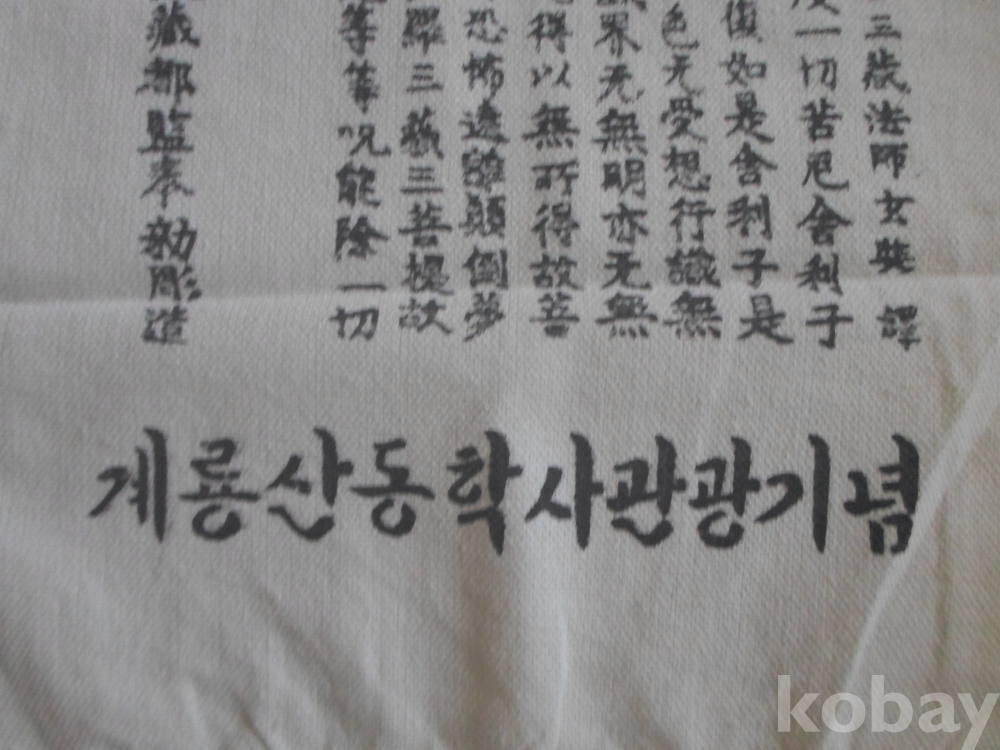 三藏法師玄奘 譯
一切苦厄舍利子
復如是舍利子是
色无受想行識無
界无無明亦无無
得以無所得故菩
恐怖遠離顚倒夢
羅三藐三菩提故
等等呪能除一切
藏都監奉勅彫造
계룡산동학사관광기념
kobay